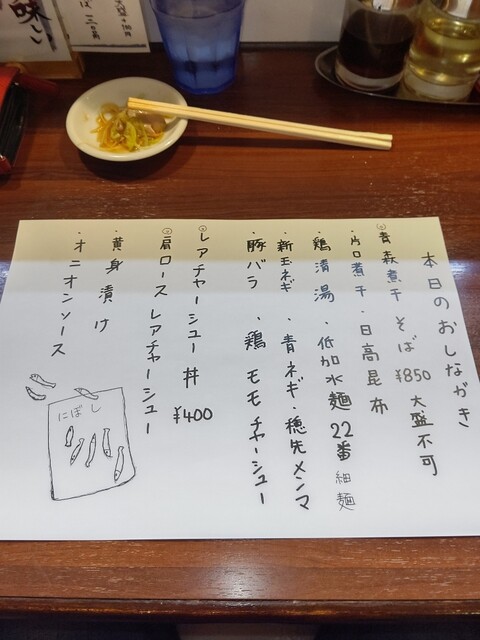 本日のおしながき
◎青森煮干そば ¥850 大盛不可
・片口煮干・日高昆布
鶏清湯・低加水麺22番 細麺
・新玉ネギ・青ネギ・穂先メンマ
・豚バラ・鶏モモチャーシュー
◎レアチャーシュー丼 ¥400
◎肩ロースレアチャーシュー
・黄身漬け
・オニオンソース
にぼし
味しい